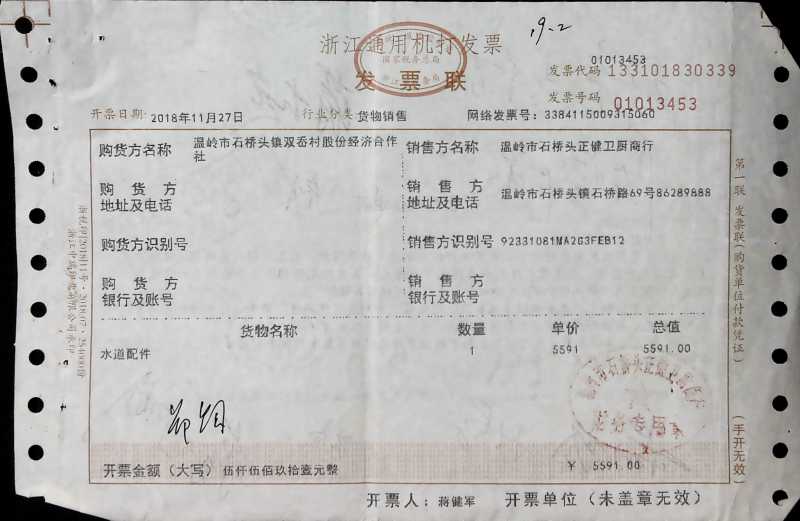 19-2
浙江通用机打发票
国家税务总局
发票联
01013453
发票代码 133101830339
发票号码 01013453
开票日期: 2018年11月27日 行业分类: 货物销售 网络发票号: 3384115009315060
购货方名称 温岭市石桥头镇双岙村股份经济合作社
销售方名称 温岭市石桥头正健卫厨商行
购货方地址及电话
销售方地址及电话 温岭市石桥头镇石桥路69号86289888
购货方识别号
销售方识别号 92331081MA2G3FEB12
购货方银行及账号
销售方银行及账号
货物名称 数量 单价 总值
水道配件 1 5591 5591.00
发票专用章
开票金额（大写） 伍仟伍佰玖拾壹元整 ￥ 5591.00
开票人: 蒋健军 开票单位（未盖章无效）
第一联 发票联（购货单位付款凭证）
（手开无效）